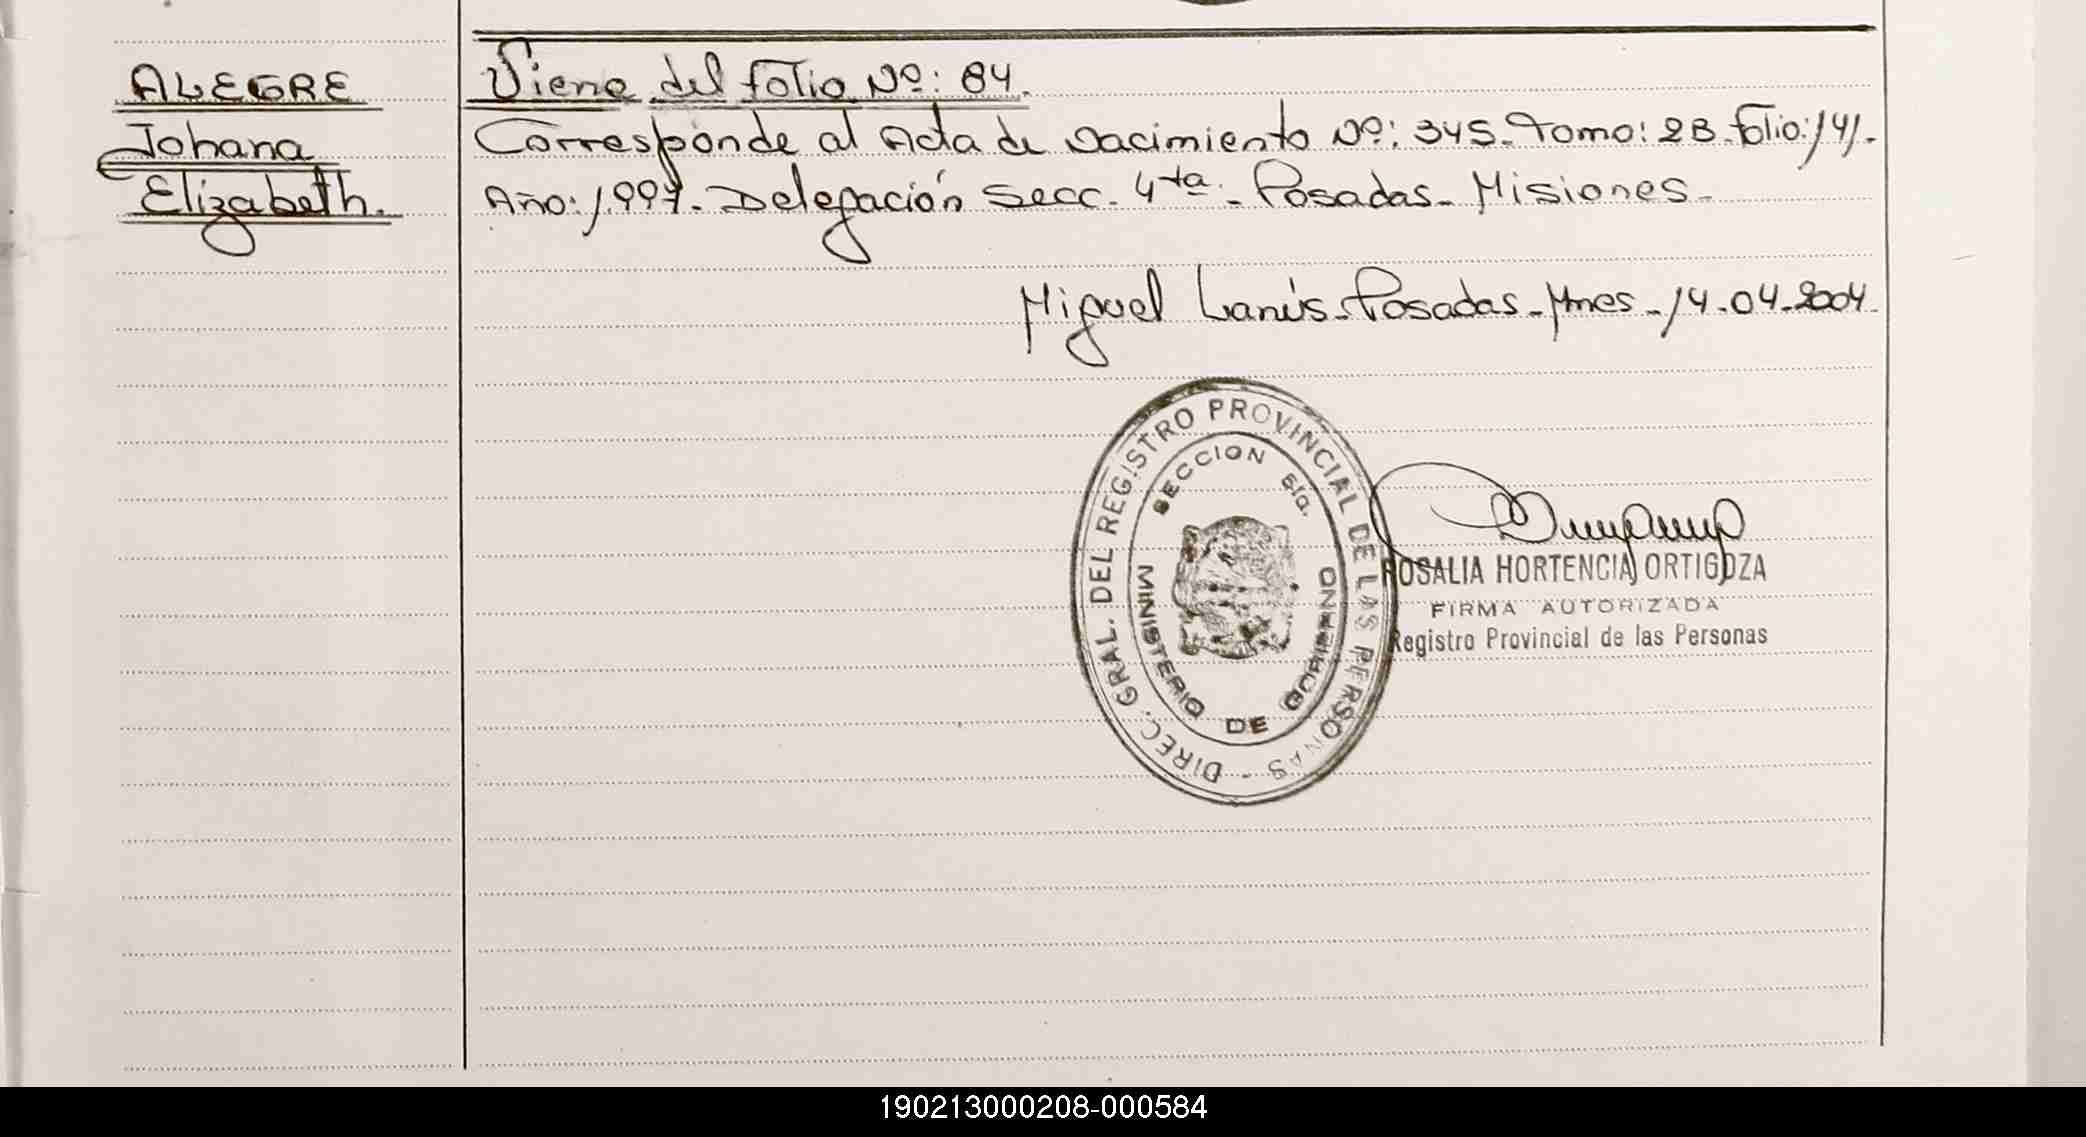 ALEGRE
Johana
Elizabeth.
Viene del folio Nº: 84.
Corresponde al Acta de Nacimiento Nº: 345. Tomo: 2B. folio: 141.
Año: 1.997. Delegación Secc. 4ta. - Posadas - Misiones -
Miguel Lanús - Posadas - Mnes - 14.04.2004.
DIREC. GRAL. DEL REGISTRO PROVINCIAL DE LAS PERSONAS -
SECCION 5ta.
MINISTERIO DE GOBIERNO
ROSALIA HORTENCIA ORTIGOZA
FIRMA AUTORIZADA
Registro Provincial de las Personas
190213000208-000584